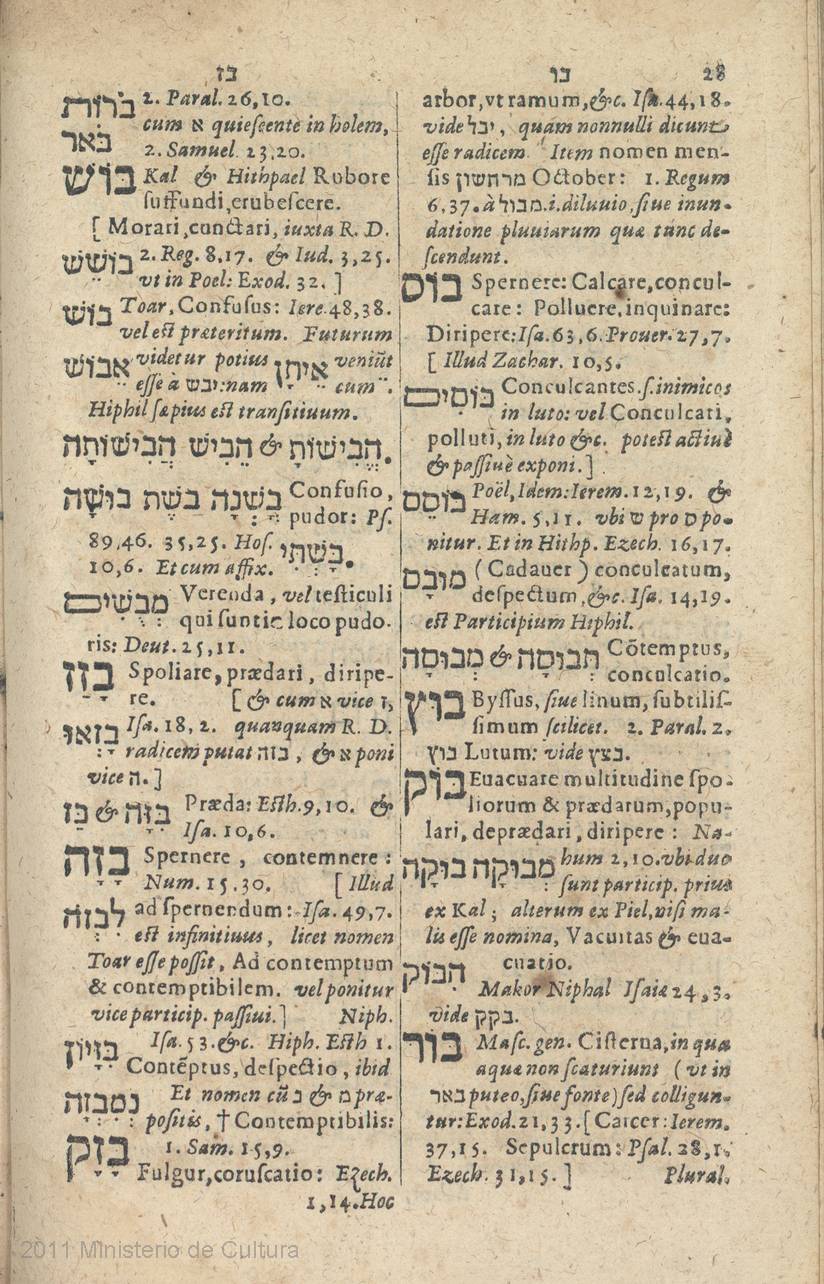 28 בו בז
arbor, vt ramum, &c. Isa. 44,18.
vide יבל, quam nonnulli dicunt
esse radicem. Item nomen men-
sis מרחשון October: 1. Regum
6,37. à מבול .i. diluuio, siue inun-
datione pluuiarum quæ tunc de-
scendunt.
בוס Spernere: Calcare, concul-
care: Polluere, inquinare:
Diripere: Isa. 63,6. Prouer. 27,7.
[ Illud Zachar. 10,5.
בּוֹסִים Conculcantes. s. inimicos
in luto: vel Conculcati,
polluti, in luto &c. potest actiuè
& passiuè exponi. ]
בּוֹסֵס Poël, Idem: Ierem. 12,19. &
Ham. 5,11. vbi ש pro ס po-
nitur. Et in Hithp. Ezech. 16,17.
מוּבָס ( Cadauer ) conculcatum,
despectum, &c. Isa. 14,19.
est Participium Hiphil.
תְּבוּסָה & מְבוּסָה Cōtemptus,
conculcatio.
בּוּץ Byssus, siue linum, subtilis-
simum scilicet. 2. Paral. 2.
בוץ Lutum: vide בצץ.
בּוּק Euacuare multitudine spo-
liorum & prædarum, popu-
lari, deprædari, diripere: Na-
מְבוּקָה בּוּקָה hum 2,10. vbi duo
sunt particip. prius
ex Kal; alterum ex Piel, nisi ma-
lis esse nomina, Vacuitas & eua-
הִבּוֹק cuatio.
Makor Niphal Isaiæ 24,3.
vide בקק.
בּוֹר Masc. gen. Cisterna, in qua
aquæ non scaturiunt ( vt in
באר puteo, siue fonte ) sed colligun-
tur: Exod. 21,33. [ Carcer: Ierem.
37,15. Sepulcrum: Psal. 28,1.
Ezech. 31,15. ] Plural.
בֹּרוֹת 2. Paral. 26,10.
cum א quiescente in holem,
בֹּאר 2. Samuel 23,20.
בּוֹשׁ Kal & Hithpael Rubore
suffundi, erubescere.
[ Morari, cunctari, iuxta R. D.
בּוֹשֵׁשׁ 2. Reg. 8,17. & Iud. 3,25.
vt in Poel: Exod. 32. ]
בּוֹשׁ Toar, Confusus: Iere. 48,38.
vel est præteritum. Futurum
אֵבוֹשׁ videtur potius אֵיתָן veniūt
esse à יבש: nam cum
Hiphil sæpius est transitiuum.
הֱבִישׁוֹתָה הֵבִישׁ & הֱבִישׁוֹת.
בּוּשָׁה בֹּשֶׁת בָּשְׁנָה Confusio,
pudor: Ps.
89,46. 35,25. Hos. בָּשְׁתִּי.
10,6. Et cum affix.
מְבֻשִׁים Verenda, vel testiculi
qui sunt in eo loco pudo-
ris: Deut. 25,11.
בָּזַז Spoliare, prædari, diripe-
re. [ & cum א vice ז,
בָּזְאוּ Isa. 18,2. quanquam R. D.
radicem putat בזה, & א poni
vice ה. ]
בִּזָּה & בַּז Præda: Esth. 9,10. &
Isa. 10,6.
בָּזָה Spernere, contemnere:
Num. 15.30. [ Illud
לִבְזֹה ad spernendum: Isa. 49,7.
est infinitiuus, licet nomen
Toar esse possit, Ad contemptum
& contemptibilem. vel ponitur
vice particip. passiui. ] Niph.
בִּזָּיוֹן Isa. 53. &c. Hiph. Esth 1.
Contēptus, despectio, ibid
נְמִבְזָה Et nomen cū נ & מ præ-
positis, † Contemptibilis:
בָּזָק 1. Sam. 15,9.
Fulgur, coruscatio: Ezech.
1,14. Hoc
2011 Ministerio de Cultura